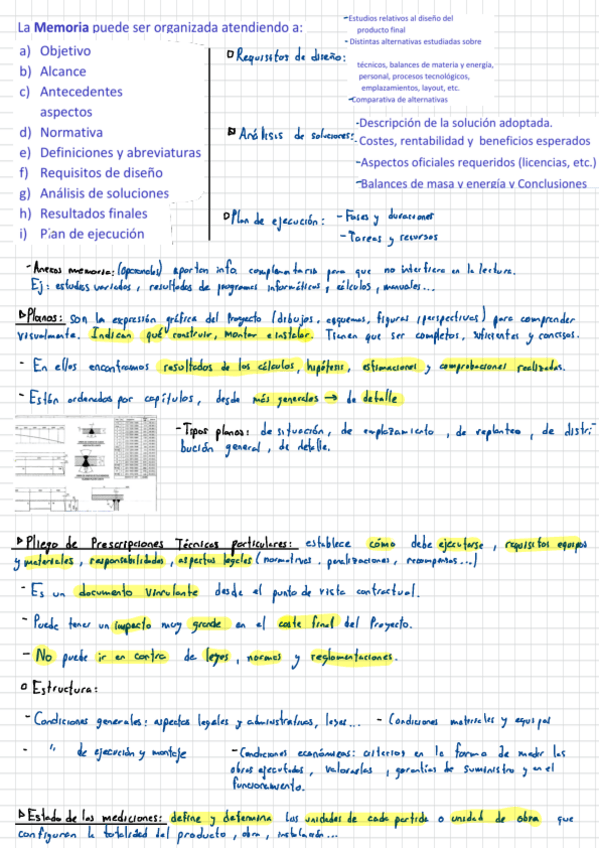 La Memoria puede ser organizada atendiendo a:
a) Objetivo
b) Alcance
c) Antecedentes
aspectos
d) Normativa
e) Definiciones y abreviaturas
f) Requisitos de diseño
g) Análisis de soluciones
h) Resultados finales
i) Plan de ejecución
Requisitos de diseño:
-Estudios relativos al diseño del
producto final
- Distintas alternativas estudiadas sobre
técnicos, balances de materia y energía,
personal, procesos tecnológicos,
emplazamientos, layout, etc.
-Comparativa de alternativas
Análisis de soluciones:
-Descripción de la solución adoptada.
- Costes, rentabilidad y beneficios esperados
-Aspectos oficiales requeridos (licencias, etc.)
-Balances de masa y energía y Conclusiones
Plan de ejecución: - Fases y duraciones
- Tareas y recursos
- Anexos memoria: (opcionales) aportan info. complementaria para que no interfiera en la lectura.
Ej: estudios variados, resultados de programas informáticos, cálculos, manuales...
Planos: son la expresión gráfica del Proyecto (dibujos, esquemas, figuras, perspectivas) para comprender
visualmente. Indican qué construir, montar e instalar. Tienen que ser completos, suficientes y concisos.
- En ellos encontramos resultados de los cálculos, hipótesis, estimaciones y comprobaciones realizadas.
- Están ordenados por capítulos, desde más generales → de detalle
- Tipos planos: de situación, de emplazamiento, de replanteo, de distri-
bución general, de detalle.
Pliego de Prescripciones Técnicas particulares: establece cómo debe ejecutarse, requisitos equipos
y materiales, responsabilidades, aspectos legales (normativas, penalizaciones, recompensas...)
- Es un documento vinculante desde el punto de vista contractual.
- Puede tener un impacto muy grande en el coste final del Proyecto.
- No puede ir en contra de leyes, normas y reglamentaciones.
Estructura:
- Condiciones generales: aspectos legales y administrativos, leyes... - Condiciones materiales y equipos
- " de ejecución y montaje
- Condiciones económicas: criterios en la forma de medir las
obras ejecutadas, valorarlas, garantías de suministro y en el
funcionamiento.
Estado de las mediciones: define y determina las unidades de cada partida o unidad de obra que
configuran la totalidad del producto, obra, instalación...